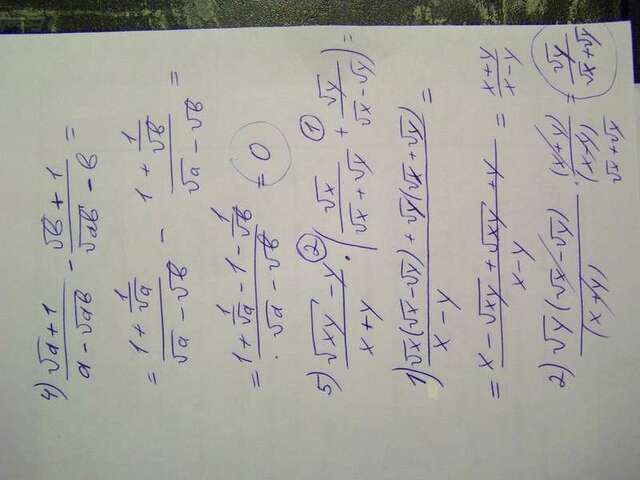 4) (√a + 1)/(a - √ab) - (√b + 1)/(√ab - b) =
= (1 + 1/√a)/(√a - √b) - (1 + 1/√b)/(√a - √b) =
= (1 + 1/√a - 1 - 1/√b)/(√a - √b) = 0
② ①
5) (√xy - y)/(x + y) · (√x/(√x + √y) + √y/(√x - √y)) =
1) (√x(√x - √y) + √y(√x + √y))/(x - y) =
= (x - √xy + √xy + y)/(x - y) = (x + y)/(x - y)
2) (√y(√x - √y))/(x + y) · (x + y)/(x - y) = √y/(√x + √y)
√x + √y